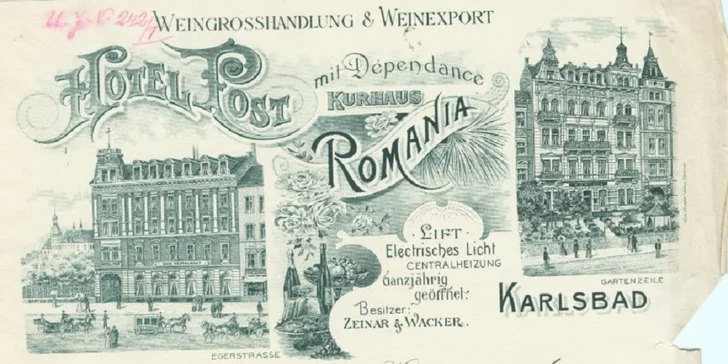 WEINGROSSHANDLUNG & WEINEXPORT
HOTEL POST
mit Dépendance
KURHAUS
ROMANIA
LIFT
Electrisches Licht
CENTRALHEIZUNG
Ganzjährig
geöffnet.
Besitzer:
ZEINAR & WACKER.
EGERSTRASSE
GARTENZEILE
KARLSBAD